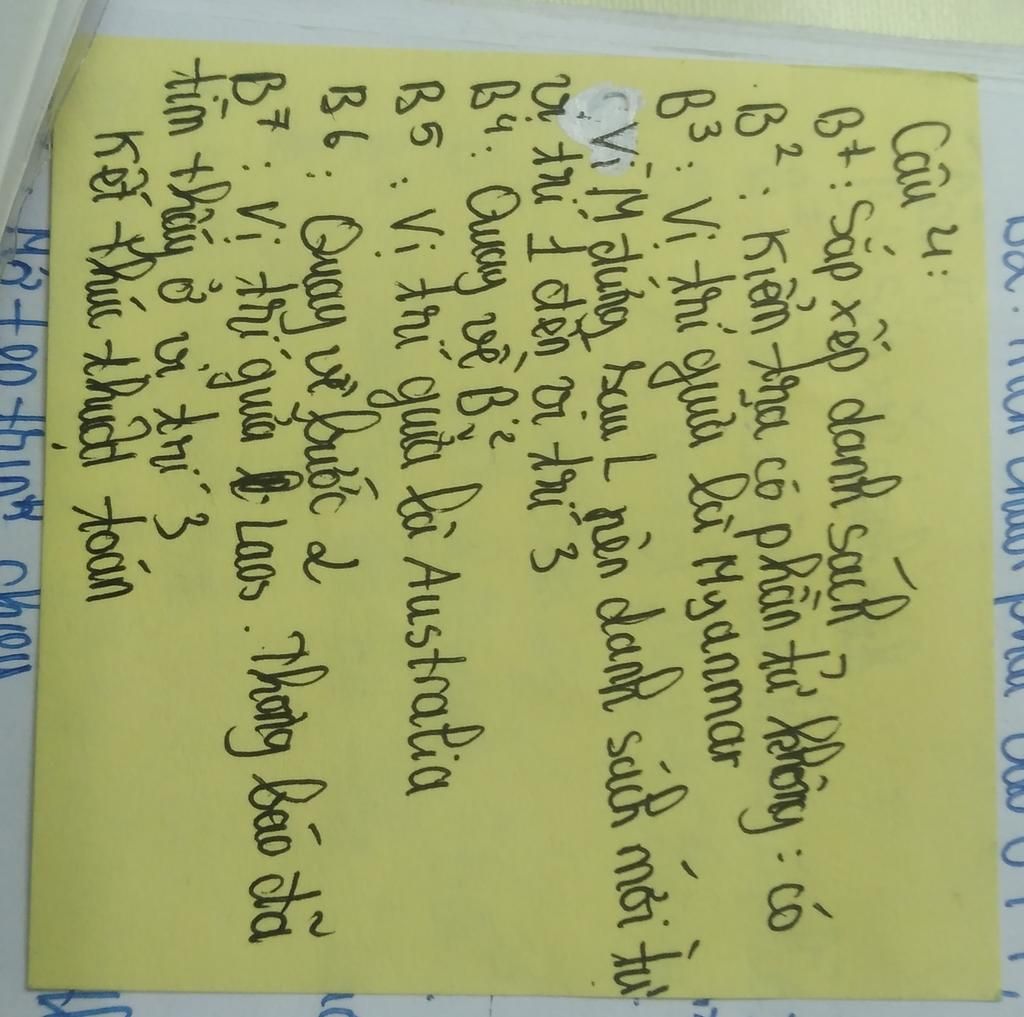 Câu 4:
B1: Sắp xếp danh sách
B2: Kiểm tra có phần tử không: có
B3: Vị trí giữa là Myanmar
Vì M đứng sau L nên danh sách mới từ
vị trí 1 đến vị trí 3
B4: Quay về B2
B5: Vị trí giữa là Australia
B6: Quay về bước 2
B7: Vị trí giữa là Laos. Thông báo đã
tìm thấy ở vị trí 3
Kết thúc thuật toán